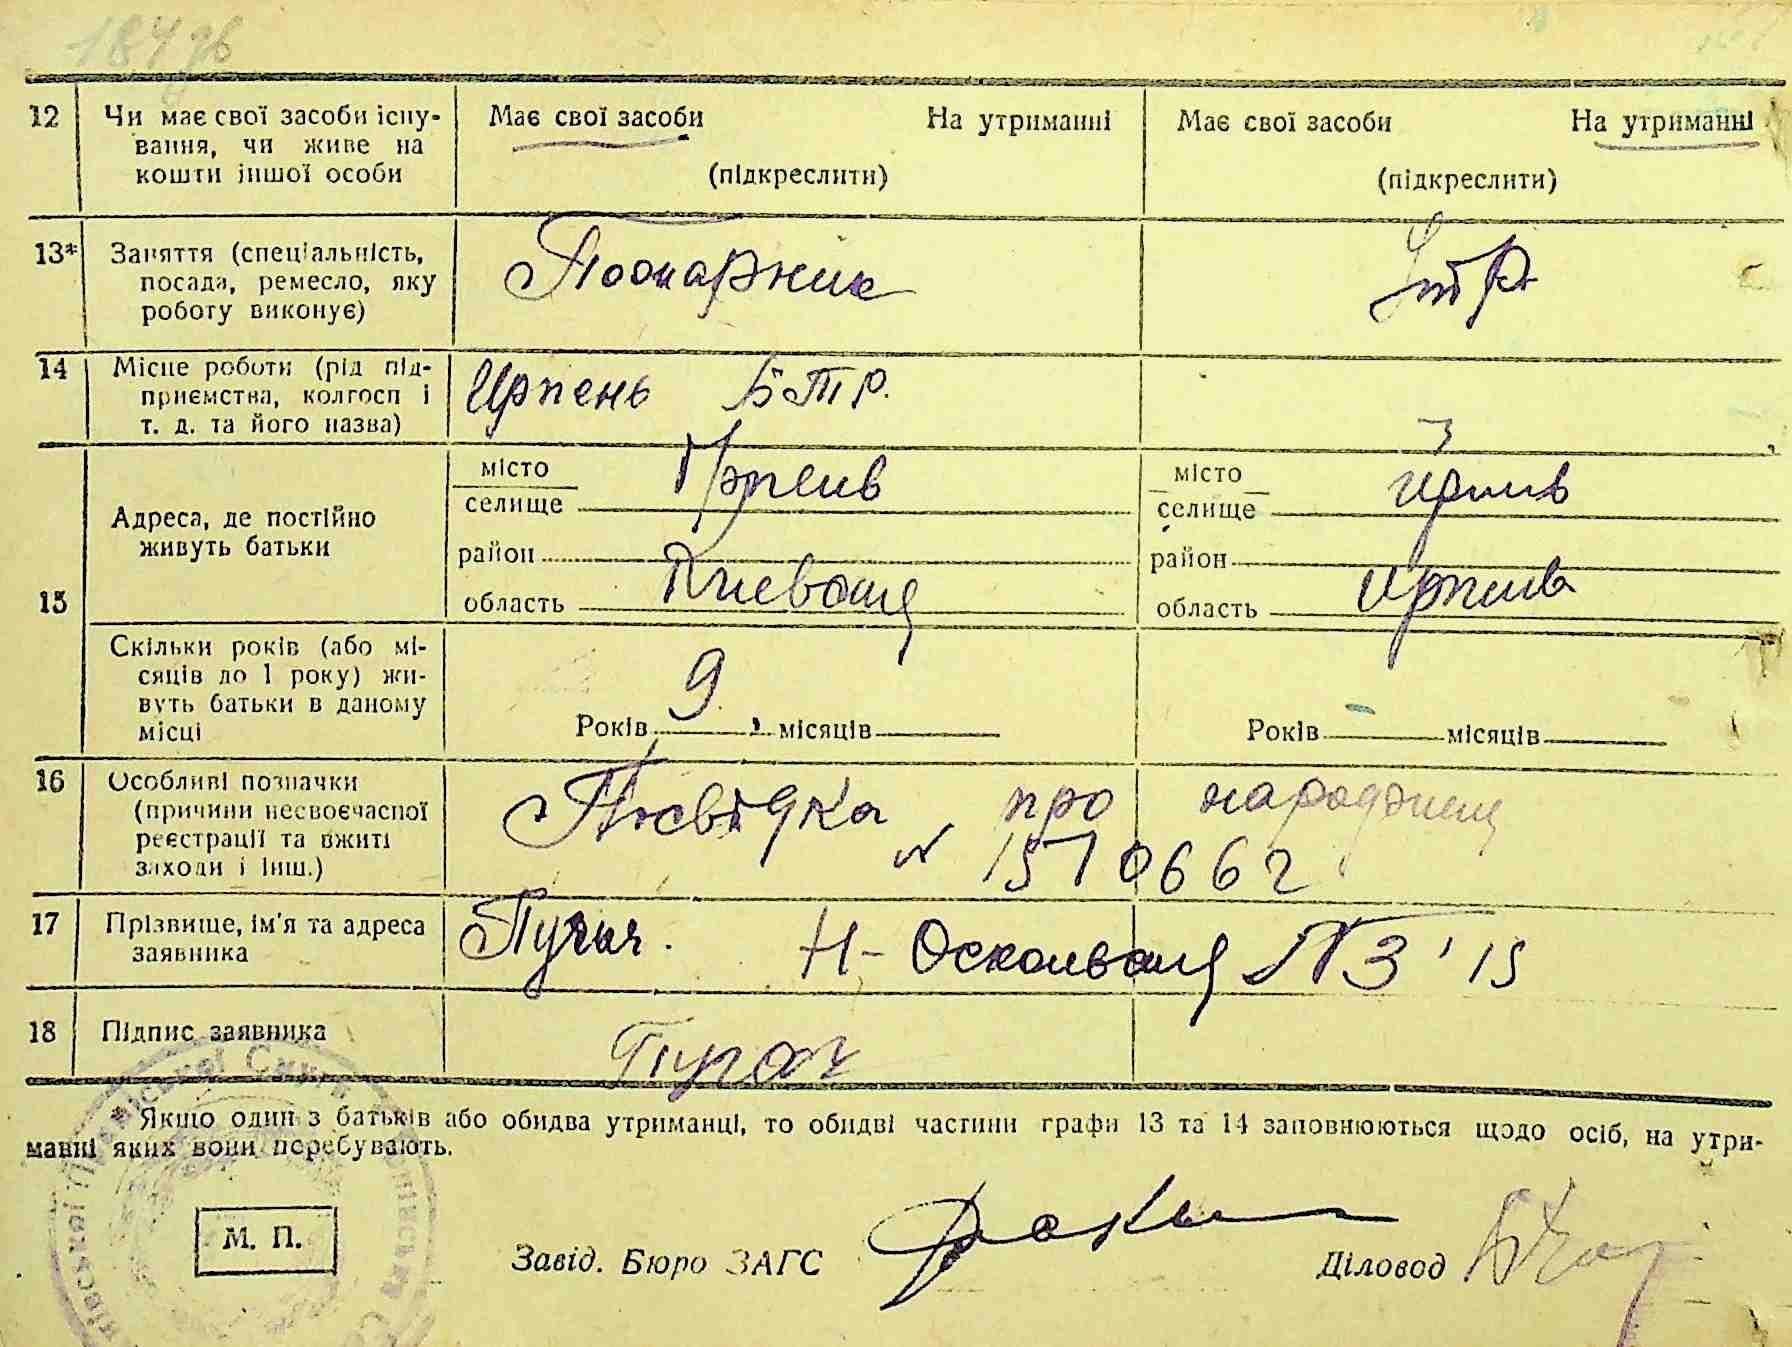 184 зв
12 Чи має свої засоби існу- Має свої засоби На утриманні Має свої засоби На утриманні
вання, чи живе на
кошти іншої особи (підкреслити) (підкреслити)
13* Заняття (спеціальність, Пожарник
посада, ремесло, яку
роботу виконує)
14 Місце роботи (рід під- Ирпень БТР.
приємства, колгосп і
т. д. та його назва)
15 Адреса, де постійно
живуть батьки
місто Ірпень місто
селище селище
район район
область Київська область
Скільки років (або мі-
сяців до 1 року) жи-
вуть батьки в даному
місці
Років 9 місяців Років місяців
16 Особливі позначки
(причини несвоєчасної
реєстрації та вжиті
заходи і інш.)
про
№ 1510662
17 Прізвище, ім'я та адреса
заявника
Пугач. Н- № 3 15
18 Підпис заявника Пугач
* Якщо один з батьків або обидва утриманці, то обидві частини графи 13 та 14 заповнюються щодо осіб, на утри-
манні яких вони перебувають.
М. П.
Завід. Бюро ЗАГС Діловод